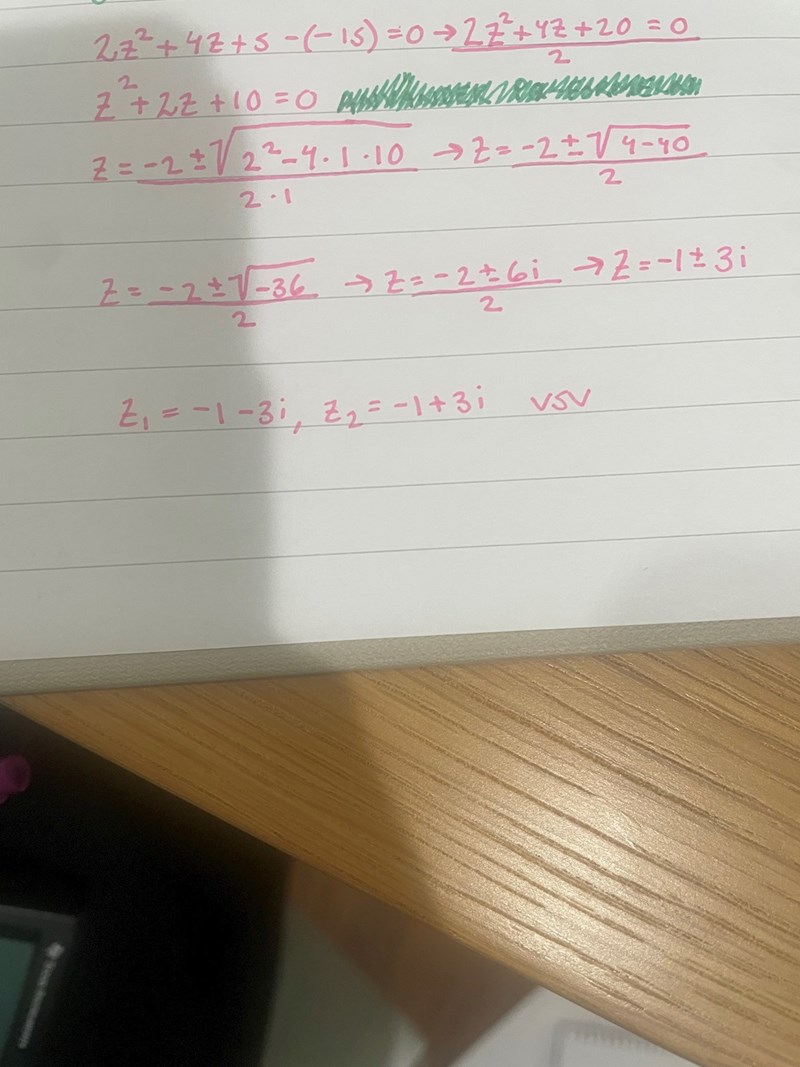 2z² + 4z + 5 - (-15) = 0 → 2z² + 4z + 20 = 0 / 2
z² + 2z + 10 = 0
z = (-2 ± √(2² - 4 · 1 · 10)) / (2 · 1) → z = (-2 ± √(4 - 40)) / 2
z = (-2 ± √(-36)) / 2 → z = (-2 ± 6i) / 2 → z = -1 ± 3i
z₁ = -1 - 3i, z₂ = -1 + 3i VSV